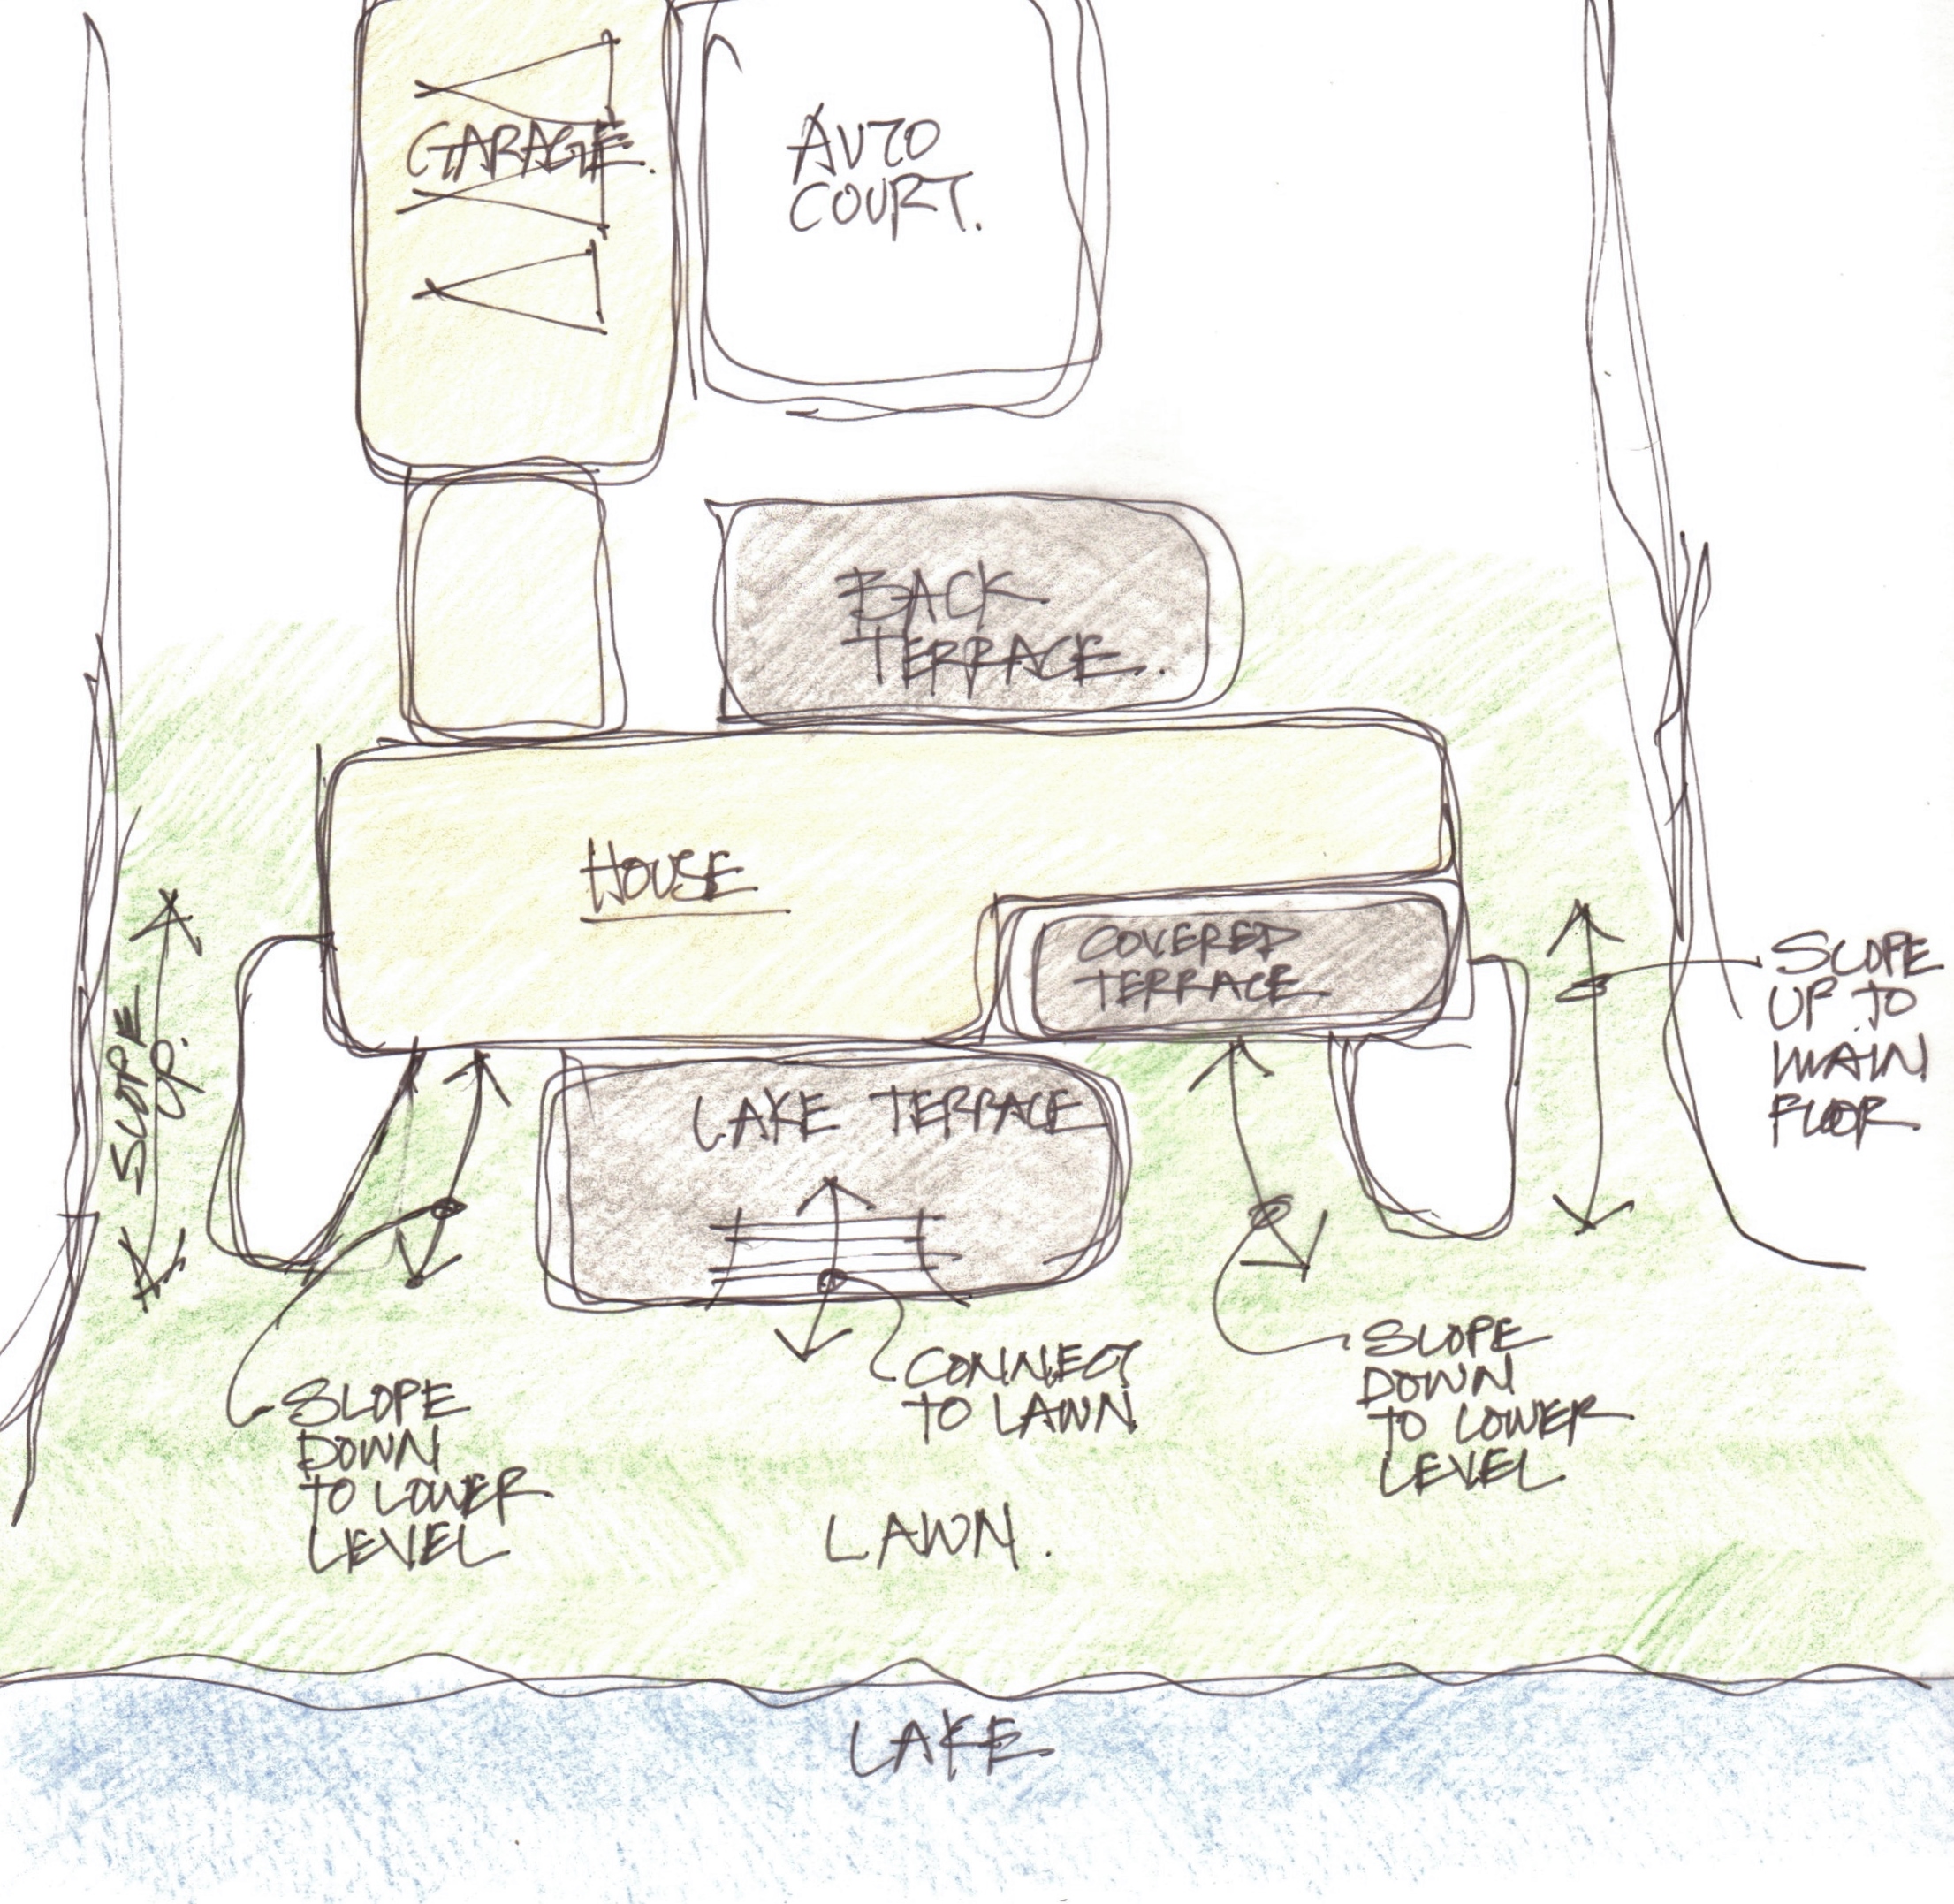 GARAGE.
AUTO
COURT.
BACK
TERRACE.
HOUSE
COVERED
TERRACE
SLOPE
UP TO
MAIN
FLOOR
SLOPE
UP.
LAKE TERRACE
CONNECT
TO LAWN
SLOPE
DOWN
TO LOWER
LEVEL
SLOPE
DOWN
TO LOWER
LEVEL
LAWN.
LAKE